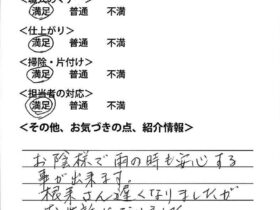 満足 普通 不満
<仕上がり>
満足 普通 不満
<掃除・片付け>
満足 普通 不満
<担当者の対応>
満足 普通 不満
<その他、お気づきの点、紹介情報>
お陰様で雨の時も安心する
事が出来ます。
根来さん遅くなりましたが